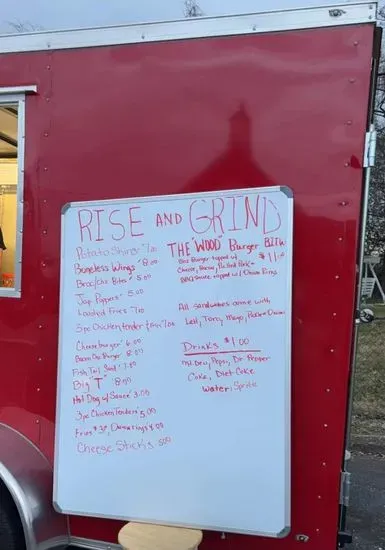 RISE AND GRIND
Potato Skins 7.00
Boneless Wings 8.00
Broc/Che Bites 5.00
Jap Poppers 5.00
Loaded Fries 7.00
3pc Chicken tender + fries
Cheeseburger 6.00
Bacon Burger 8.00
Fish Tail Sand
Big "T" 8.00
Hot Dog w/ Sauce 3.00
3pc Chicken tenders 5.00
Fries $3
Cheese Sticks 5.00
THE "WOOD" Burger
$11.00
Burger topped w/
Cheese, Bacon, Pulled Pork +
BBQ Sauce topped w/ Onion Rings
All sandwiches come with
Lett, Tom, Mayo, Pickle + Onion
Drinks $1.00
Mt. Dew, Pepsi, Dr. Pepper
Coke, Diet Coke
Water, Sprite